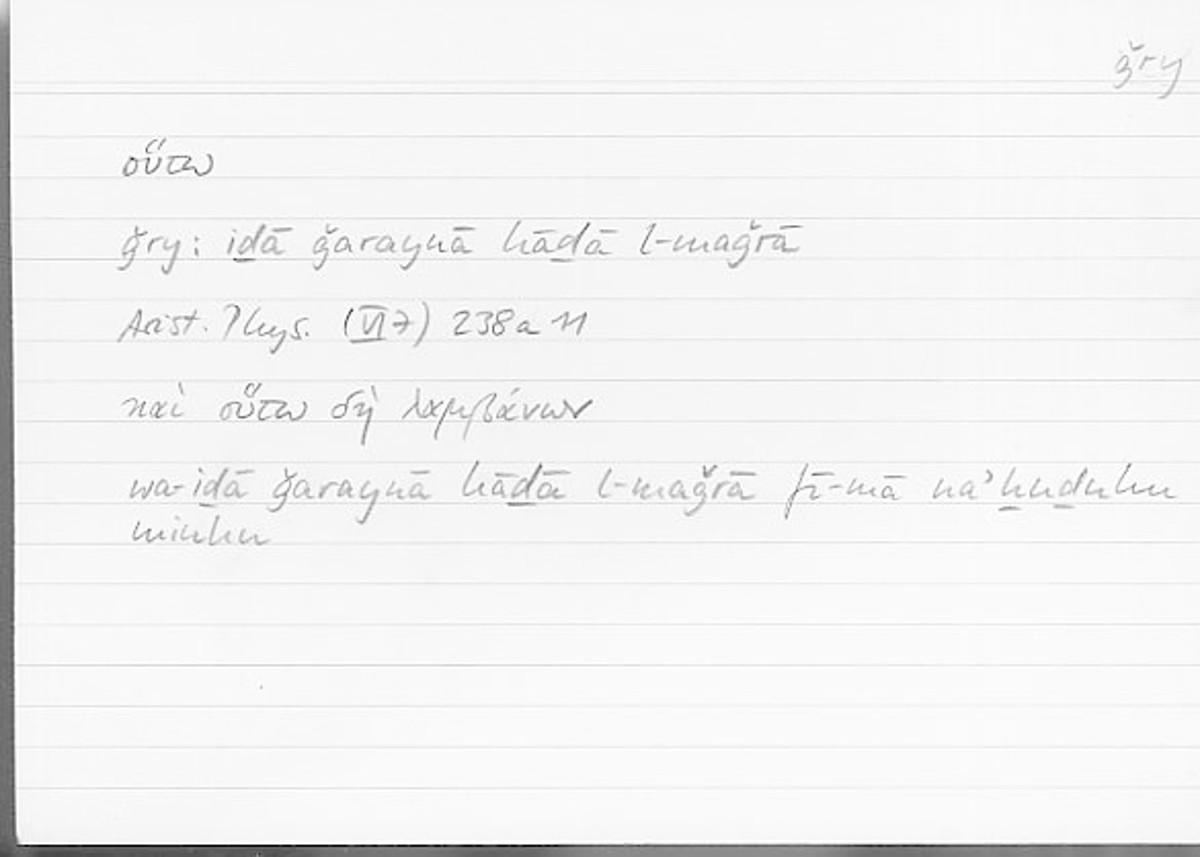 ǧry
οὕτω
ǧry: iḏā ǧaraynā hāḏā l-maǧrā
Arist. Phys. (VI 7) 238 a 11
καὶ οὕτω δὴ λαμβάνων
wa-iḏā ǧaraynā hāḏā l-maǧrā fī-mā naʾḫuḏuhu
minhu